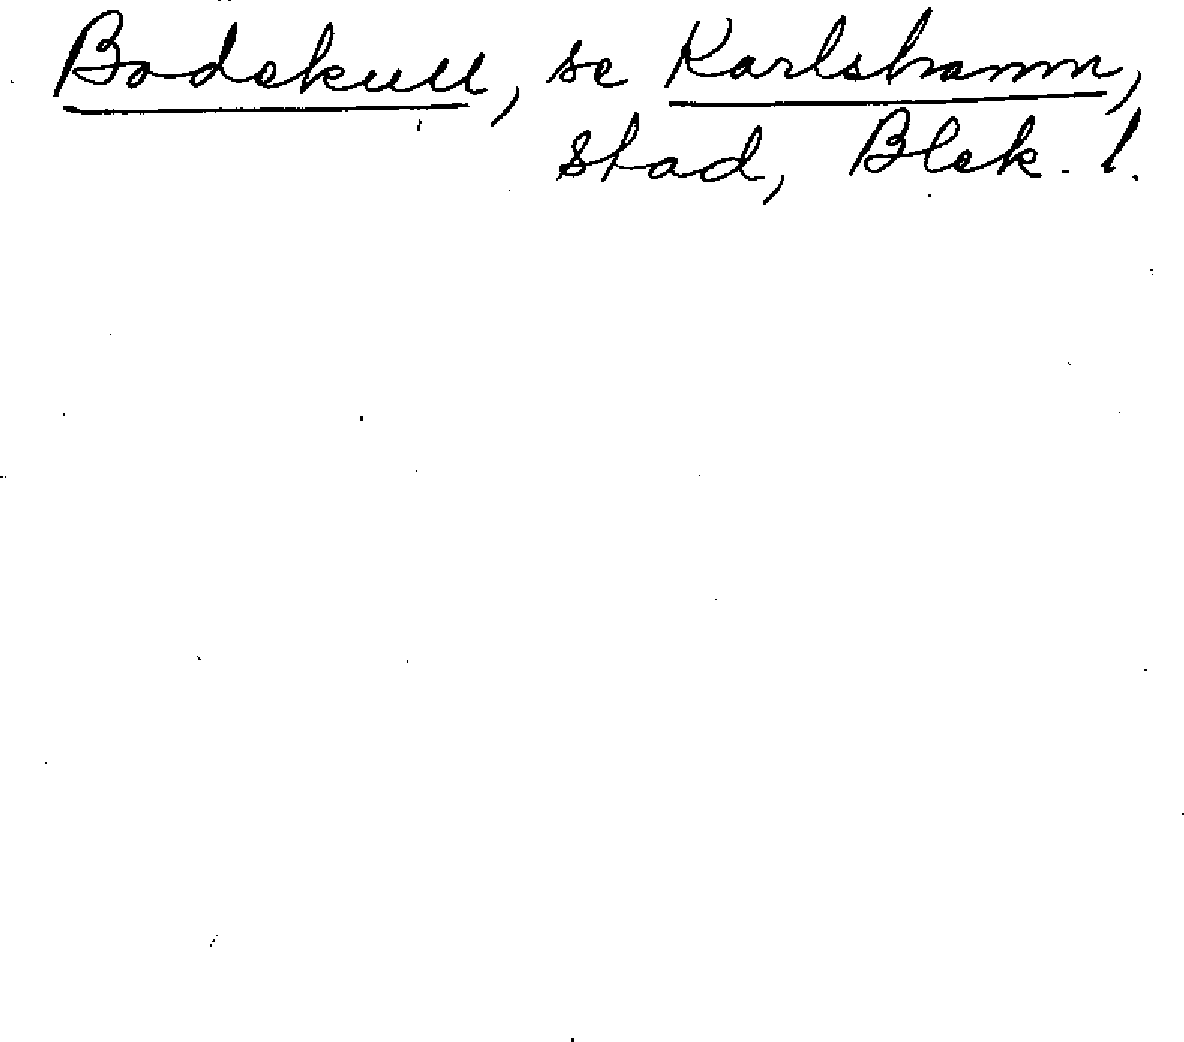 Bodekull, se Karlshamn,
stad, Blek. l.